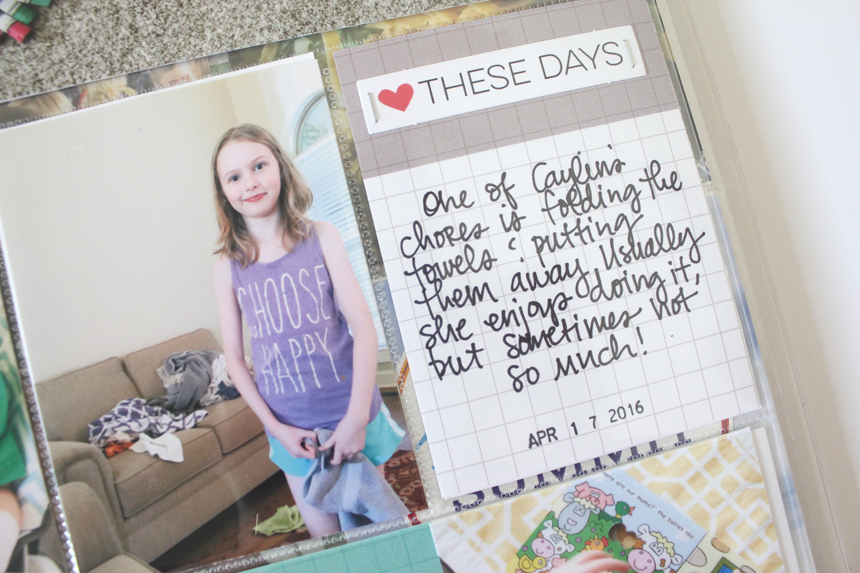 THESE DAYS
One of Caylin's
chores is folding the
towels & putting
them away. Usually
she enjoys doing it,
but sometimes not
so much!
APR 17 2016
CHOOSE
HAPPY
SUMMIT